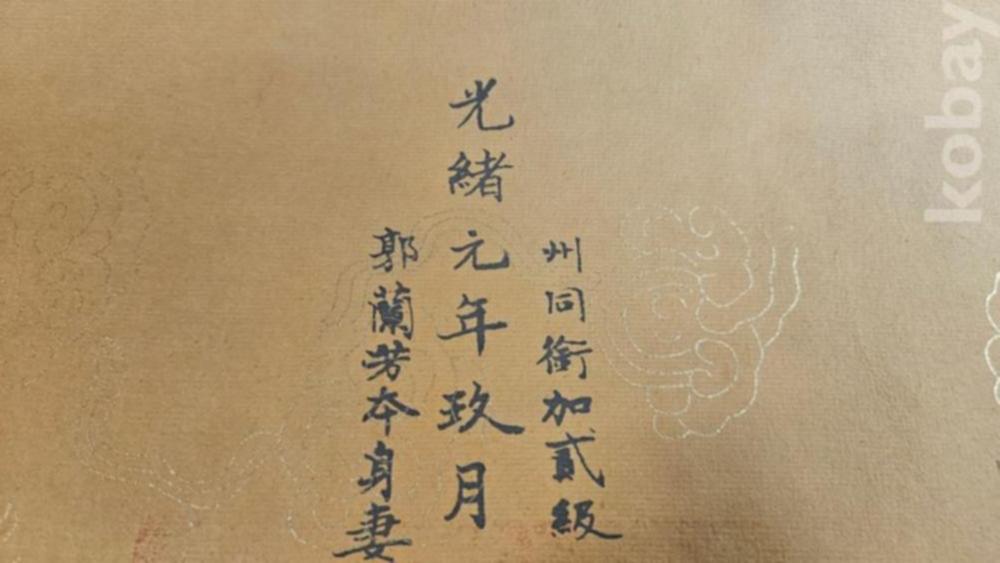 州同銜加貳級
光緒元年玖月
郭蘭芳本身妻
kobay